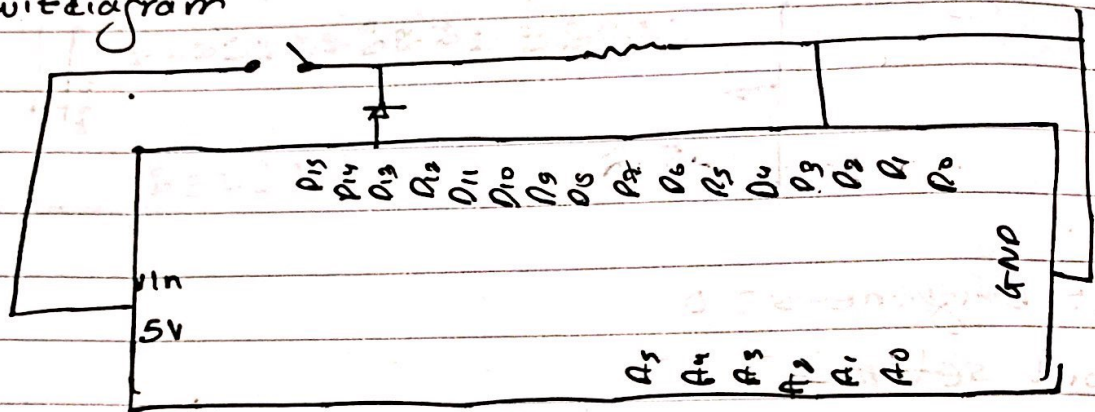 diagram
D15 D14 D13 D12 D11 D10 D9 D8 D7 D6 D5 D4 D3 D2 D1 D0
Vin
5V
GND
A5 A4 A3 A2 A1 A0